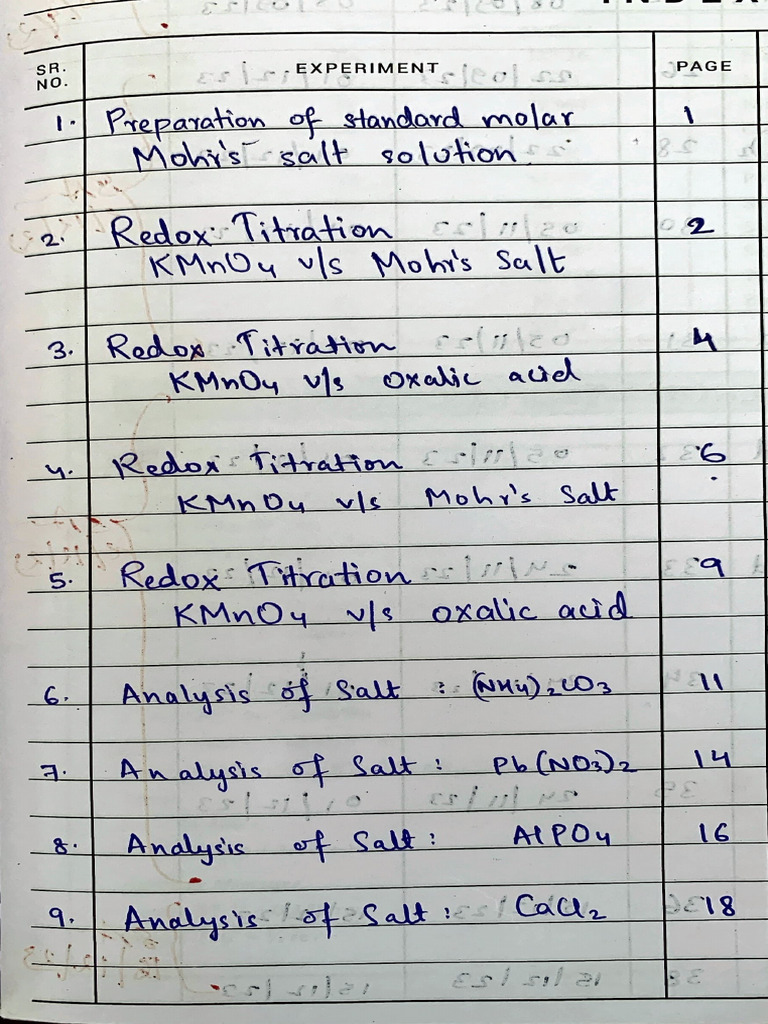 INDEX
SR. NO. EXPERIMENT PAGE
1. Preparation of standard molar 1
Mohr's salt solution
2. Redox Titration 2
KMnO4 v/s Mohr's Salt
3. Redox Titration 4
KMnO4 v/s oxalic acid
4. Redox Titration 6
KMnO4 v/s Mohr's Salt
5. Redox Titration 9
KMnO4 v/s oxalic acid
6. Analysis of Salt : (NH4)2CO3 11
7. Analysis of Salt : Pb(NO3)2 14
8. Analysis of Salt : AlPO4 16
9. Analysis of Salt : CaCl2 18